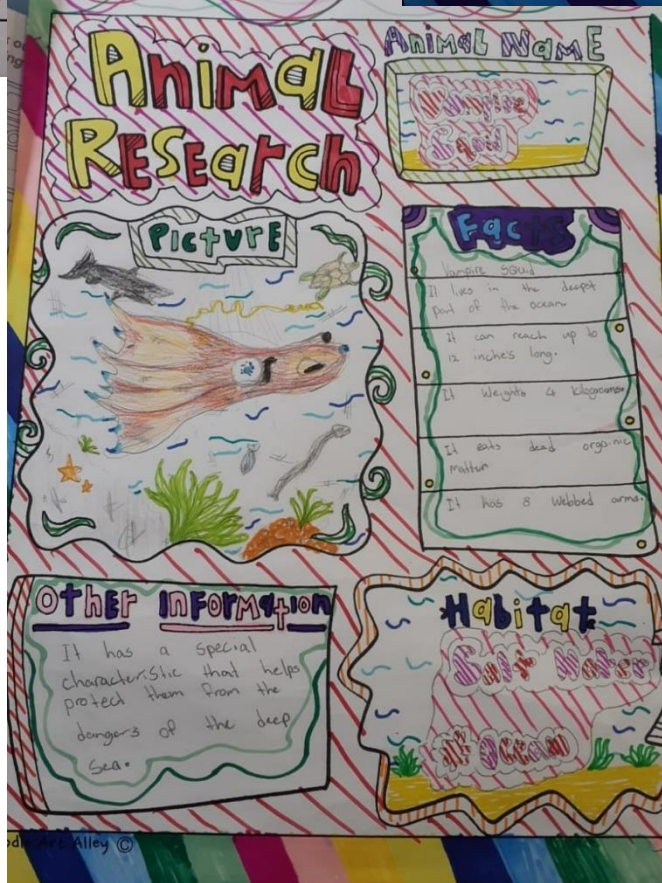 Animal
Research
Animal Name
Vampire
Squid
Picture
Facts
Vampire Squid
It lives in the deepst
part of the ocean
It can reach up to
12 inche's long.
It Weights 4 kilograms.
It eats dead organic
matter
It has 8 webbed arms.
Other Information
It has a special
characteristic that helps
protect them from the
dangers of the deep
Sea.
Habitat
Salt Water
Ocean
Art Alley ©